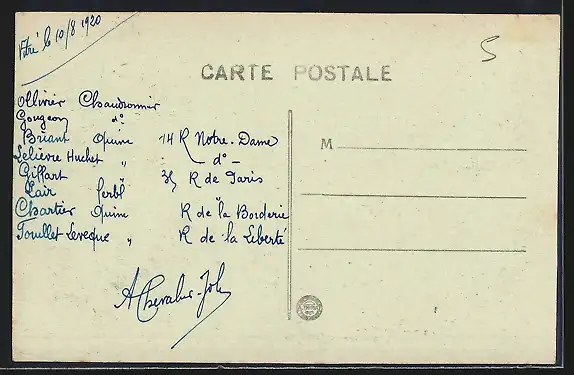 Vitré le 10/8 1920
5
CARTE POSTALE
Ollivier Chaudronnier
Gougeon d°
Briant Quinc 14 R Notre-Dame
Lelièvre Huchet " - d° -
Giffart " 35 R de Paris
Lair ferbl "
Chartier Quinc R de la Borderie
Touillet Leveque " R de la Liberté
M
A Chevalier